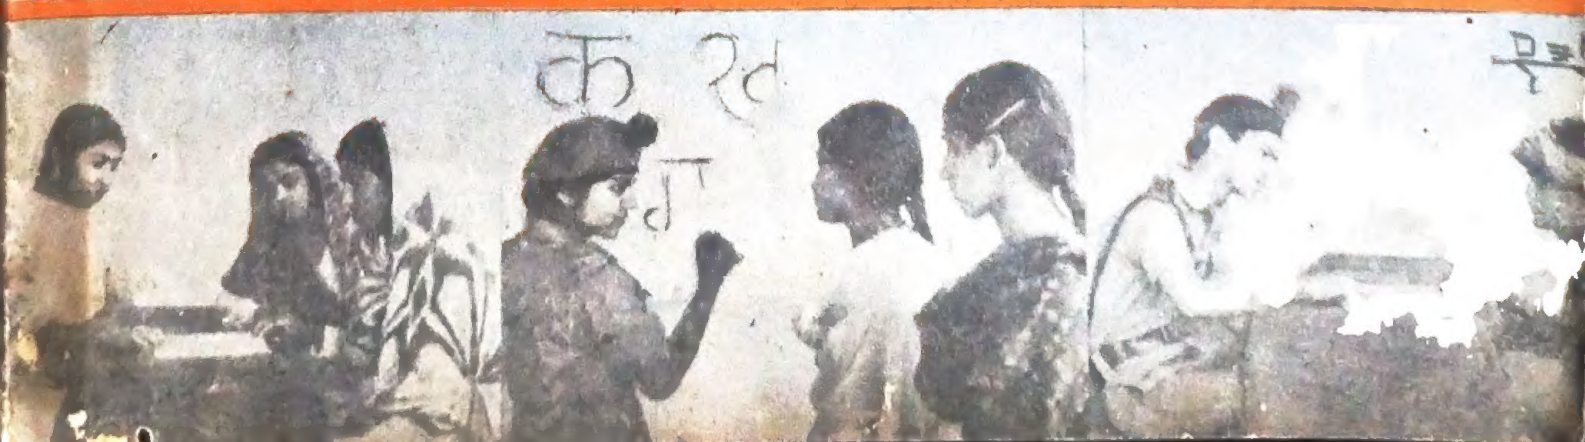 क ख
ग